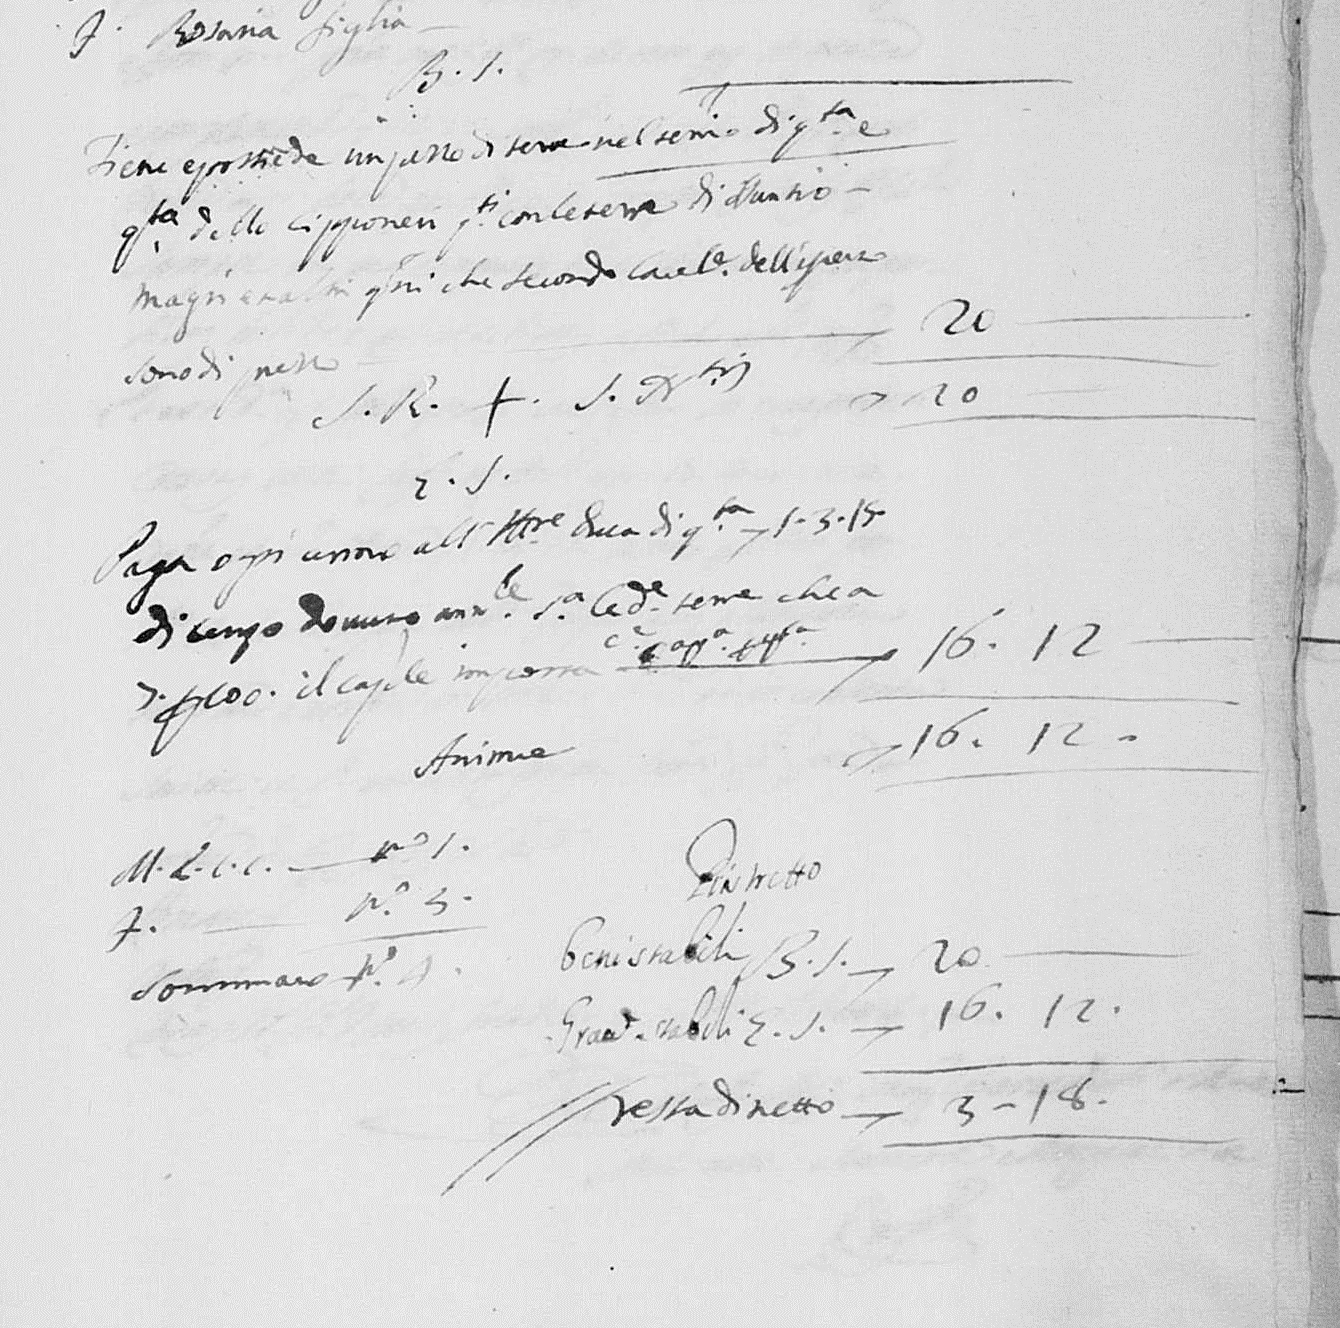 F. Rosaria figlia
B. S.
Tiene e possiede un pezzo di terra nel terri.o di q.ta e
q.ta dello cipponeri q.ti con le terre di Nunzio
Magri ed altri q.ni che secondo la rel.e dell'esperto
sono di prezzo 20
S. R. + S. N.tii 20
G. S.
Paga ogni anno all' Ill.re Duca di q.ta 1. 3. 15
di censo dovuto ann.le s.a le d.e terre che a
7. p 100. il cap.le importa 16. 12
Anime 16. 12 -
M. L. C. C. N.o 1.
F. N.o 3.
Sommano N.o 4.
Ristretto
Beni stabili B. S. 20
Gravd. stabili G. S. 16. 12.
Resta di netto 3 - 18.